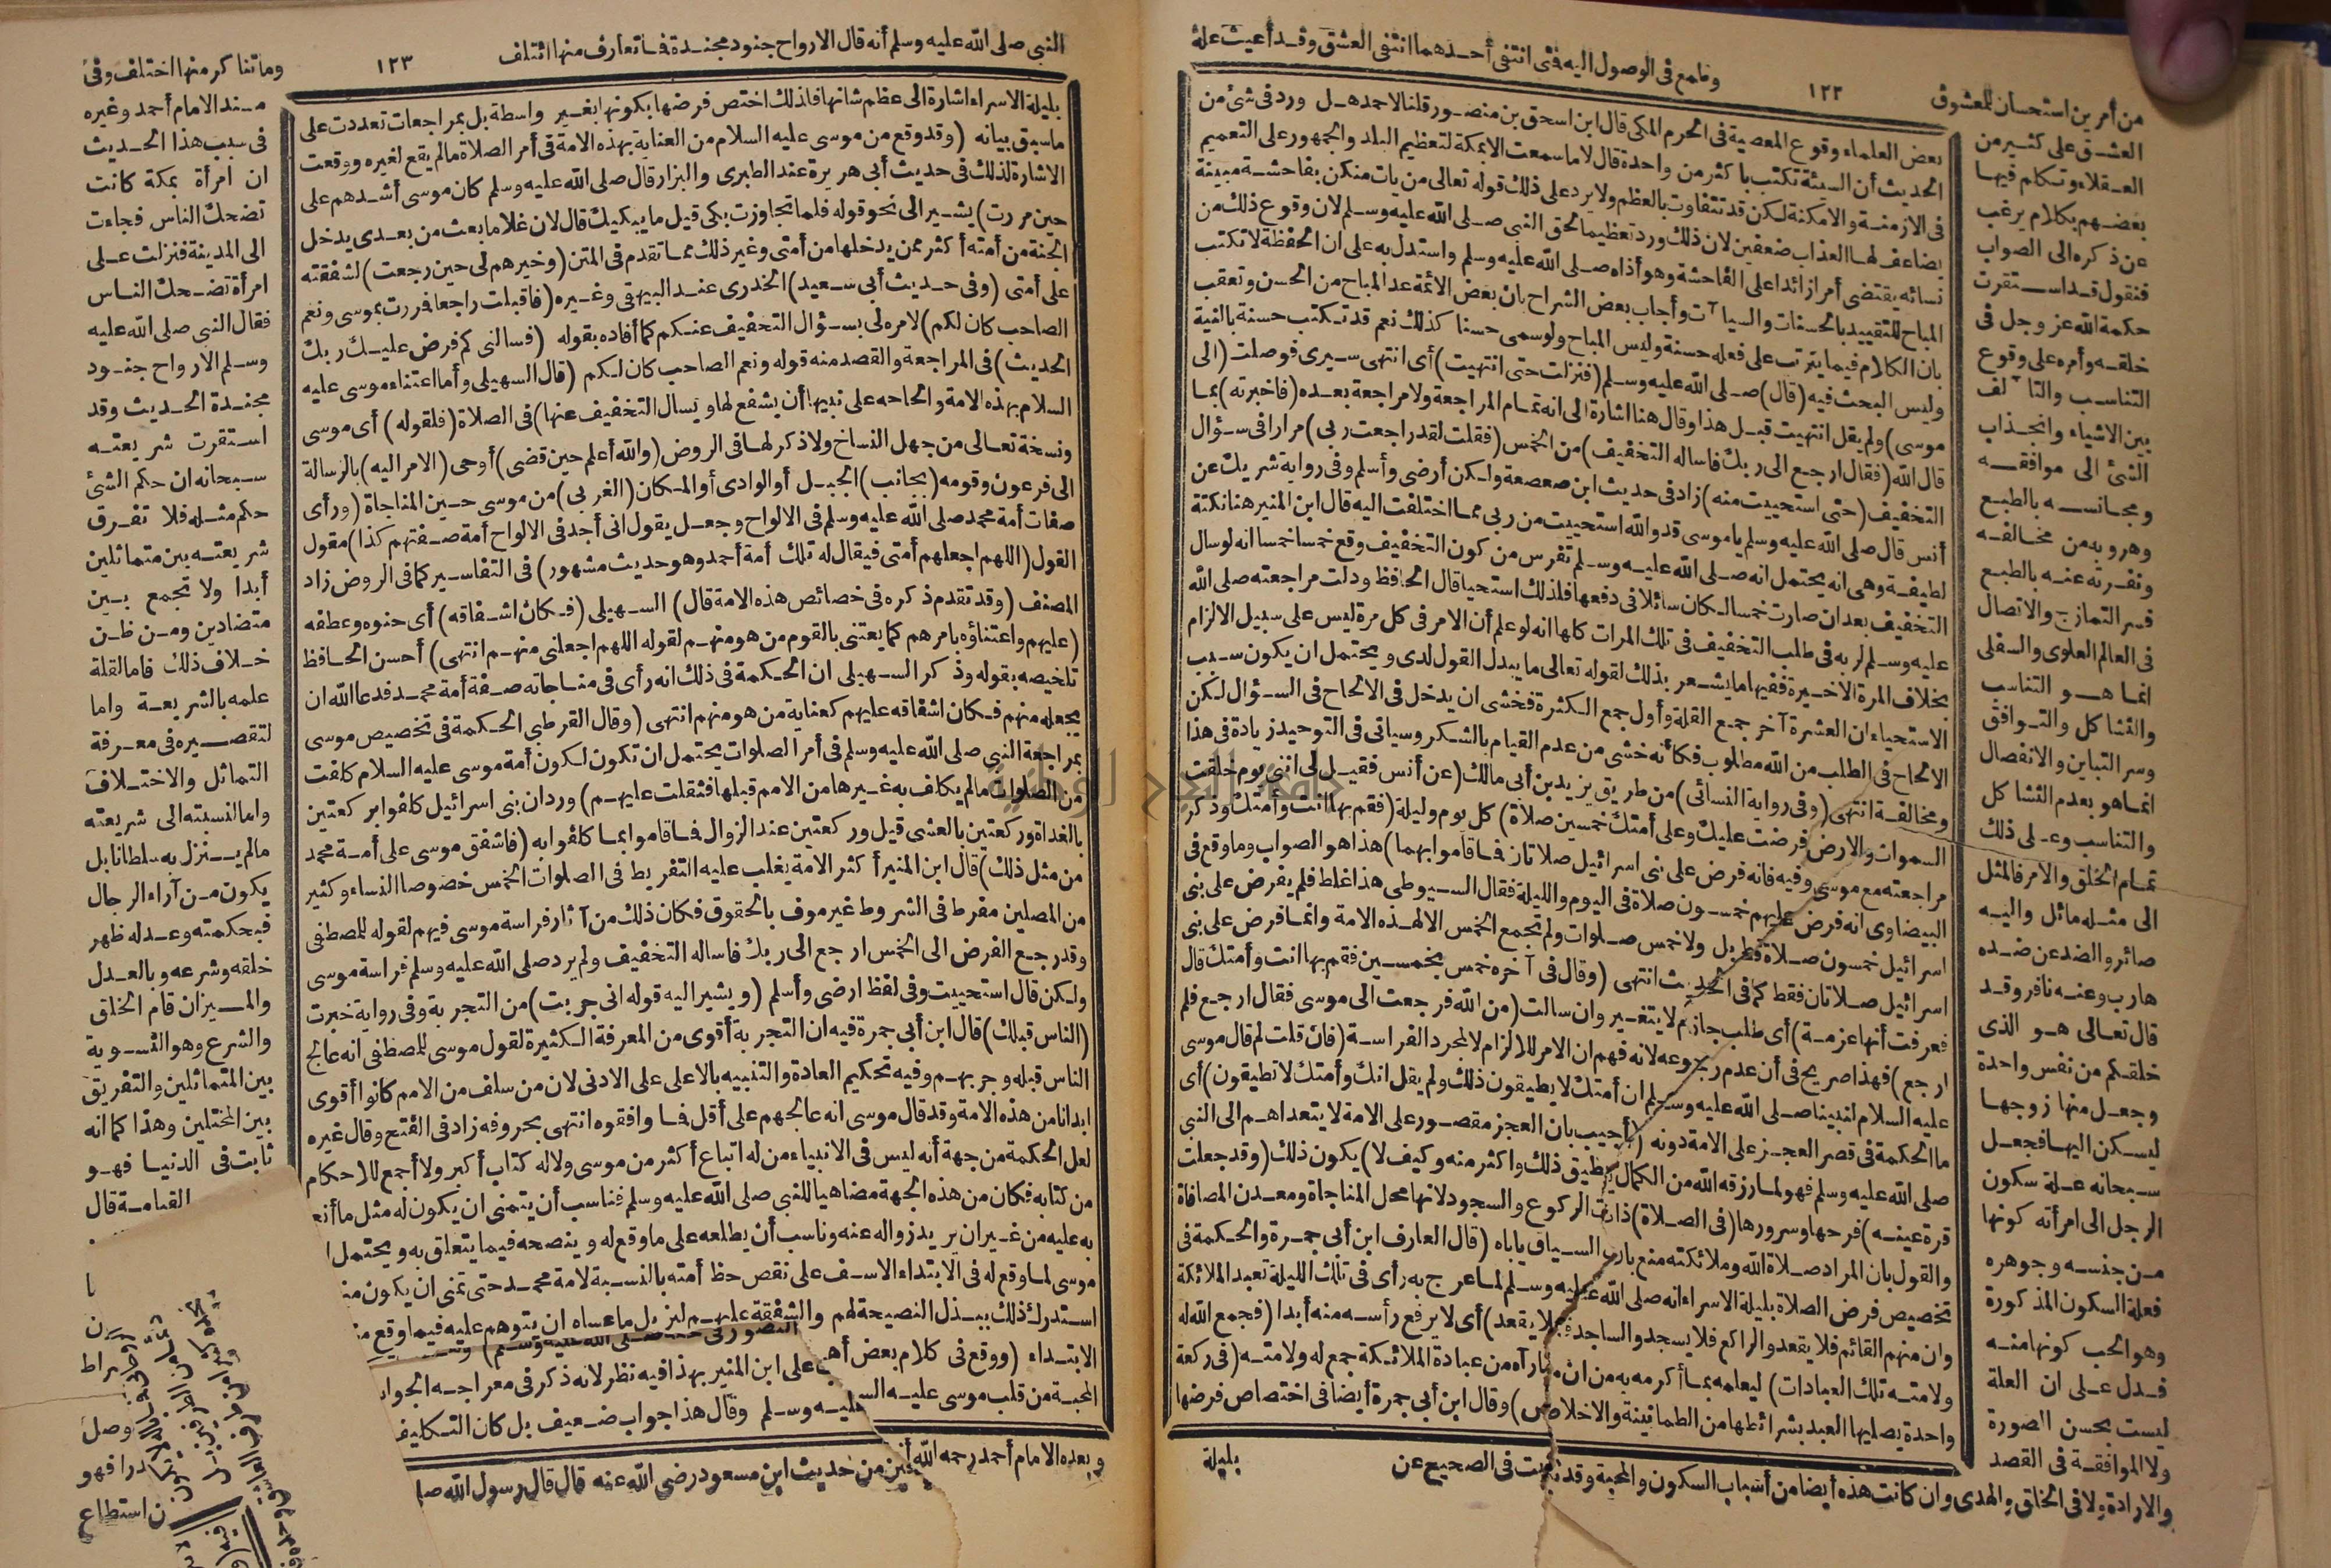 وطامع في الوصول اليه فتى انتفى أحدهما انتفى العشق وقد أعيت علة
١٢٢
من أمرين استحسان للمعشوق
بعض العلماء وقوع المعصية في الحرم المكى قال ابن اسحق بن منصور قلنا لاحمد هل ورد في شئ من
الحديث أن السيئة تكتب باكثر من واحدة قال لا ما سمعت الا بمكة لتعظيم البلد والجمهور على التعميم
في الازمنة والامكنة لكن قد تتفاوت بالعظم ولا يرد على ذلك قوله تعالى من يات منكن بفاحشة مبينة
يضاعف لها العذاب ضعفين لان ذلك ورد تعظيما لحق النبي صلى الله عليه وسلم لان وقوع ذلك من
نسائه يقتضى أمرا زائدا على الفاحشة وهو أذاه صلى الله عليه وسلم واستدل به على ان الحفظة لا تكتب
المباح للتقييد بالحسنات والسيا آت وأجاب بعض الشراح بان بعض الائمة عد المباح من الحسن وتعقب
بان الكلام فيما يترتب على فعله حسنة وليس المباح ولو سمى حسنا كذلك نعم قد تكتب حسنة بالنية
وليس البحث فيه (قال) صلى الله عليه وسلم (فنزلت حتى انتهيت) أى انتهى سيرى فوصلت (الى
موسى) ولم يقل انتهيت قبل هذا وقال هنا اشارة الى انه تمام المراجعة ولا مراجعة بعده (فاخبرته) بما
قال الله (فقال ارجع الى ربك فاساله التخفيف) من الخمس (فقلت لقد راجعت ربى) مرارا في سؤال
التخفيف (حتى استحييت منه) زاد في حديث ابن صعصعة ولكن أرضى وأسلم وفي رواية شريك عن
أنس قال صلى الله عليه وسلم يا موسى قد والله استحييت من ربى مما اختلفت اليه قال ابن المنير هنا نكتة
لطيفة وهى انه يحتمل انه صلى الله عليه وسلم تفرس من كون التخفيف وقع خمسا خمسا انه لو سال
التخفيف بعد ان صارت خمسا لكان سائلا في دفعها فلذلك استحيا قال الحافظ ودلت مراجعته صلى الله
عليه وسلم لربه في طلب التخفيف في تلك المرات كلها انه لو علم أن الامر في كل مرة ليس على سبيل الالزام
بخلاف المرة الاخيرة ففيها ما يشعر بذلك لقوله تعالى ما يبدل القول لدى ويحتمل ان يكون سبب
الاستحياء ان العشرة آخر جمع القلة وأول جمع الكثرة فخشى ان يدخل في الالحاح في السؤال لكن
الالحاح في الطلب من الله مطلوب فكأنه خشى من عدم القيام بالشكر وسياتى في التوحيد زيادة في هذا
ومخالفة انتهى (وفي رواية النسائى) من طريق يزيد بن أبى مالك (عن أنس فقيل لى انى يوم خلقت
السموات والارض فرضت عليك وعلى أمتك خمسين صلاة) كل يوم وليلة (فقم بها انت وأمتك وذكر
مراجعته مع موسى وفيه فانه فرض على بنى اسرائيل صلاتان فما قاموا بهما) هذا هو الصواب وما وقع في
البيضاوى انه فرض عليهم خمسون صلاة في اليوم والليلة فقال السيوطى هذا غلط فلم يفرض على بنى
اسرائيل خمسون صلاة قط بل ولا خمس صلوات ولم تجمع الخمس الا لهذه الامة وانما فرض على بنى
اسرائيل صلاتان فقط كما في الحديث انتهى (وقال في آخره خمس بخمسين فقم بها انت وأمتك قال
فعرفت أنها عزمة) أى طلب جازم لا يتغير وان سالت (من الله فرجعت الى موسى فقال ارجع فلم
ارجع) فهذا صريح في أن عدم رجوعه لانه فهم ان الامر للالزام لا لمجرد الفراسة (فان قلت لم قال موسى
عليه السلام لنبينا صلى الله عليه وسلم ان أمتك لا يطيقون ذلك ولم يقل انك وأمتك لا تطيقون) أى
ما الحكمة في قصر العجز على الامة دونه (أجيب بان العجز مقصور على الامة لا يتعداهم الى النبي
صلى الله عليه وسلم فهو لما رزقه الله من الكمال يطيق ذلك واكثر منه وكيف لا) يكون ذلك (وقد جعلت
قرة عينه) فرحها وسرورها (في الصلاة) ذات الركوع والسجود لانها محل المناجاة ومعدن المصافاة
والقول بان المراد صلاة الله وملائكته منع بان السياق ياباه (قال العارف ابن أبى جمرة والحكمة في
تخصيص فرض الصلاة بليلة الاسراء انه صلى الله عليه وسلم لما عرج به رأى في تلك الليلة تعبد الملائكة
وان منهم القائم فلا يقعد والراكع فلا يسجد والساجد فلا يقعد) أى لا يرفع رأسه منه أبدا (فجمع الله له
ولامته تلك العبادات) ليعلمه بما أكرمه به من ان ما رآه من عبادة الملائكة جمع له ولامته (في ركعة
واحدة يصليها العبد بشرائطها من الطمانينة والاخلاص) وقال ابن أبى جمرة أيضا في اختصاص فرضها
بليلة
العشق على كثير من
العقلاء وتكلم فيها
بعضهم بكلام يرغب
عن ذكره الى الصواب
فنقول قد استقرت
حكمة الله عز وجل في
خلقه وأمره على وقوع
التناسب والتا لف
بين الاشياء وانجذاب
الشئ الى موافقه
ومجانسه بالطبع
وهروبه من مخالفه
ونفرته عنه بالطبع
فسر التمازج والاتصال
في العالم العلوى والسفلى
انما هو التناسب
والتشاكل والتوافق
وسر التباين والانفصال
انما هو بعدم التشاكل
والتناسب وعلى ذلك
تمام الخلق والامر فالمثل
الى مثله مائل واليه
صائر والضد عن ضده
هارب وعنه نافر وقد
قال تعالى هو الذى
خلقكم من نفس واحدة
وجعل منها زوجها
ليسكن اليها فجعل
سبحانه علة سكون
الرجل الى امرأته كونها
من جنسه وجوهره
فعلة السكون المذكورة
وهو الحب كونها منه
فدل على ان العلة
ليست بحسن الصورة
ولا الموافقة في القصد
والارادة ولا في الخلق والهدى وان كانت هذه أيضا من أسباب السكون والمحبة وقد ثبت في الصحيح عن
النبي صلى الله عليه وسلم أنه قال الارواح جنود مجندة فما تعارف منها ائتلف
١٢٣
وما تناكر منها اختلف وفى
بليلة الاسراء اشارة الى عظم شانها فلذلك اختص فرضها بكونها بغير واسطة بل بمراجعات تعددت على
ما سبق بيانه (وقد وقع من موسى عليه السلام من العناية بهذه الامة في أمر الصلاة ما لم يقع لغيره ووقعت
الاشارة لذلك في حديث أبى هريرة عند الطبرى والبزار قال صلى الله عليه وسلم كان موسى أشدهم على
حين مررت) يشير الى نحو قوله فلما تجاوزت بكى قيل ما يبكيك قال لان غلاما بعث من بعدى يدخل
الجنة من أمته أكثر ممن يدخلها من أمتى وغير ذلك مما تقدم في المتن (وخيرهم لى حين رجعت) لشفقته
على أمتى (وفي حديث أبى سعيد) الخدرى عند البيهقى وغيره (فاقبلت راجعا فررت بموسى ونعم
الصاحب كان لكم) لامره لى بسؤال التخفيف عنكم كما أفاده بقوله (فسالنى كم فرض عليك ربك
الحديث) في المراجعة والقصد منه قوله ونعم الصاحب كان لكم (قال السهيلى وأما اعتناء موسى عليه
السلام بهذه الامة والحاحه على نبيها أن يشفع لها ويسال التخفيف عنها) في الصلاة (فلقوله) أى موسى
ونسخة تعالى من جهل النساخ ولا ذكر لها في الروض (والله أعلم حين قضى) أوحى (الامر اليه) بالرسالة
الى فرعون وقومه (بجانب) الجبل أو الوادى أو المكان (الغربى) من موسى حين المناجاة (ورأى
صفات أمة محمد صلى الله عليه وسلم في الالواح وجعل يقول انى أجد في الالواح أمة صفتهم كذا) مقول
القول (اللهم اجعلهم أمتى فيقال له تلك أمة أحمد وهو حديث مشهور) في التفاسير كما في الروض زاد
المصنف (وقد تقدم ذكره في خصائص هذه الامة قال) السهيلى (فكان اشفاقه) أى حنوه وعطفه
(عليهم واعتناؤه بامرهم كما يعتنى بالقوم من هو منهم لقوله اللهم اجعلنى منهم انتهى) أحسن الحافظ
تلخيصه بقوله وذكر السهيلى ان الحكمة في ذلك انه رأى في مناجاته صفة أمة محمد فدعا الله ان
يجعله منهم فكان اشفاقه عليهم كعناية من هو منهم انتهى (وقال القرطبى الحكمة في تخصيص موسى
بمراجعة النبي صلى الله عليه وسلم في أمر الصلوات يحتمل ان تكون لكون أمة موسى عليه السلام كلفت
من الصلوات ما لم يكلف به غيرها من الامم قبلها فثقلت عليهم) ورد ان بنى اسرائيل كلفوا بركعتين
بالغداة وركعتين بالعشى قيل وركعتين عند الزوال فما قاموا بما كلفوا به (فاشفق موسى على أمة محمد
من مثل ذلك) قال ابن المنير أكثر الامة يغلب عليه التفريط في الصلوات الخمس خصوصا النساء وكثير
من المصلين مفرط في الشروط غير موف بالحقوق فكان ذلك من آثار فراسة موسى فيهم لقوله للمصطفى
وقد رجع الفرض الى الخمس ارجع الى ربك فاساله التخفيف ولم يرد صلى الله عليه وسلم فراسة موسى
ولكن قال استحييت وفى لفظ ارضى وأسلم (ويشير اليه قوله انى جربت) من التجربة وفى رواية خبرت
(الناس قبلك) قال ابن أبى جمرة فيه ان التجربة أقوى من المعرفة الكثيرة لقول موسى للمصطفى انه عالج
الناس قبله وجربهم وفيه تحكيم العادة والتنبيه بالاعلى على الادنى لان من سلف من الامم كانوا أقوى
ابدانا من هذه الامة وقد قال موسى انه عالجهم على أقل فما وافقوه انتهى بحروفه زاد في الفتح وقال غيره
لعل الحكمة من جهة أنه ليس في الانبياء من له اتباع أكثر من موسى ولا له كتاب أكبر ولا أجمع للاحكام
من كتابه فكان من هذه الجهة مضاهيا للنبي صلى الله عليه وسلم فناسب أن يتمنى ان يكون له مثل ما أنعم
به عليه من غير ان يريد زواله عنه وناسب أن يطلعه على ما وقع له وينصحه فيما يتعلق به ويحتمل
موسى لما وقع له في الابتداء الاسف على نقص حظ أمته بالنسبة لامة محمد حتى تمنى ان يكون
استدرك ذلك ببذل النصيحة لهم والشفقة عليهم ليزيل ما عساه ان يتوهم عليه فيما وقع
الابتداء (ووقع في كلام بعض
على ابن المنير بهذا فيه نظر لانه ذكر في معراجه الجواب
المحبة من قلب موسى عليه
عليه وسلم وقال هذا جواب ضعيف بل كان التكليف
مسند الامام أحمد وغيره
في سبب هذا الحديث
ان امرأة بمكة كانت
تضحك الناس فجاءت
الى المدينة فنزلت على
امرأة تضحك الناس
فقال النبي صلى الله عليه
وسلم الارواح جنود
مجندة الحديث وقد
استقرت شريعته
سبحانه ان حكم الشئ
حكم مثله فلا تفرق
شريعته بين متماثلين
أبدا ولا تجمع بين
متضادين ومن ظن
خلاف ذلك فاما لقلة
علمه بالشريعة واما
لتقصيره في معرفة
التماثل والاختلاف
واما لنسبته الى شريعته
ما لم ينزل به سلطانا بل
يكون من آراء الرجال
فبحكمته وعدله ظهر
خلقه وشرعه وبالعدل
والميزان قام الخلق
والشرع وهو التسوية
بين المتماثلين والتفريق
بين المختلين وهذا كما انه
ثابت في الدنيا فهو
القيامة قال
وصل
فهو
استطاع
وبعده الامام أحمد رحمه الله
من حديث ابن مسعود رضى الله عنه قال قال رسول الله